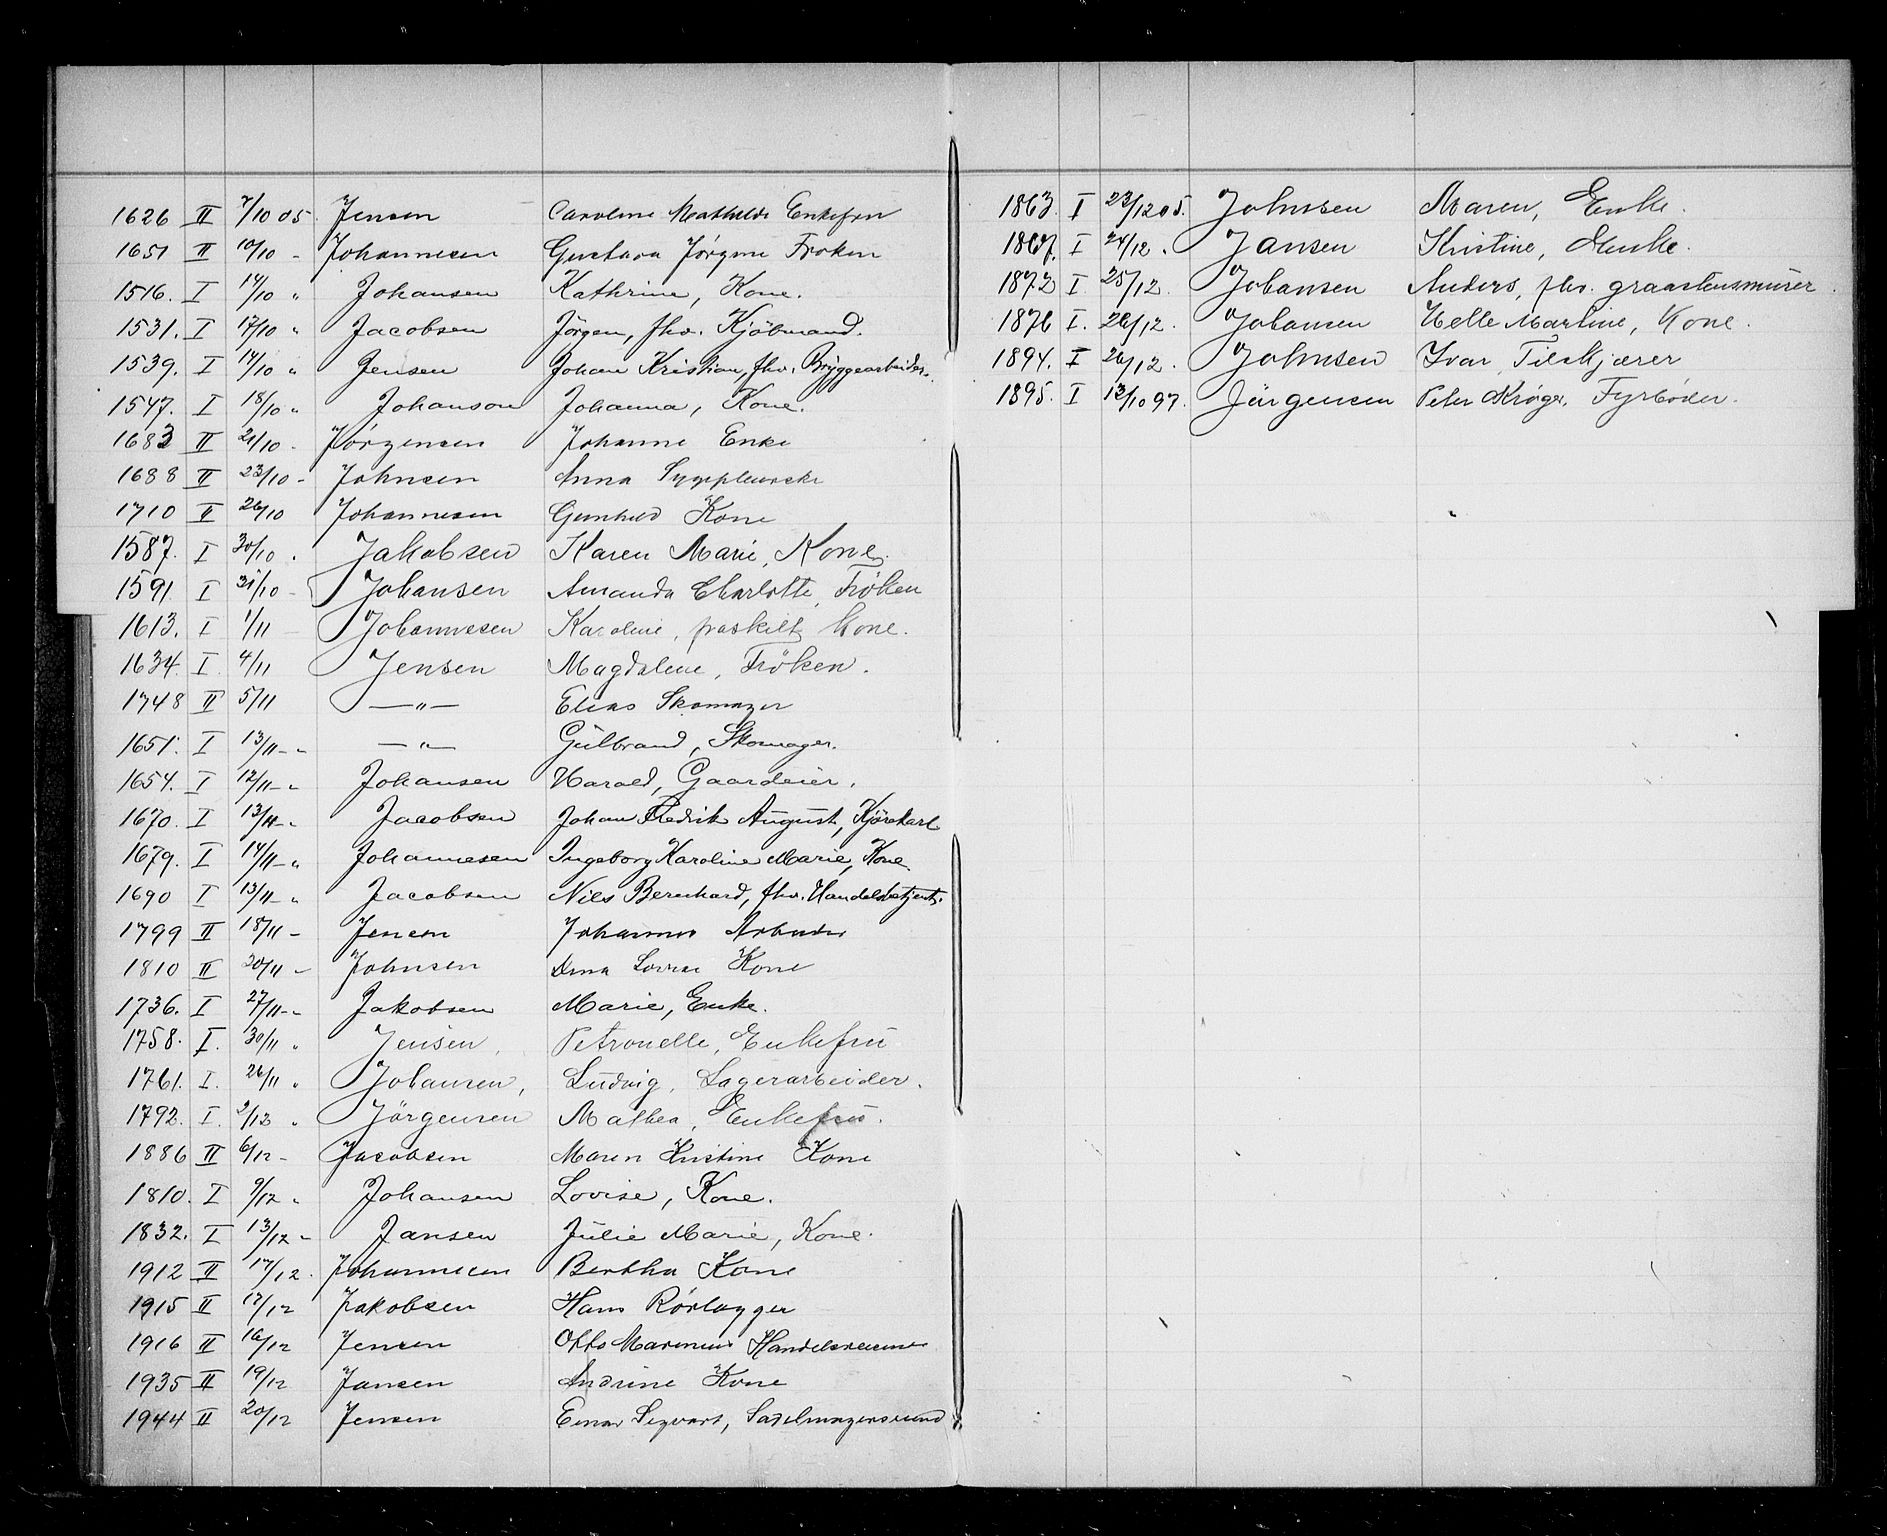 1626 II 7/10 05. Jensen Caroline Mathilde Enkefru
1651 II 10/10 - Johannesen Gustava Jørgine Frøken
1516. I 14/10 " Johansen Kathrine, Kone.
1531. I 17/10 " Jacobsen Jörgen, fhv. Kjöbmand.
1539. I 17/10 " Jensen Johan Kristian, fhv. Bryggearbeider.
1547. I 18/10 " Johanson Johanna, Kone.
1683 II 21/10 - Jørgensen Johanne Enke
1688 II 23/10 - Johnsen Anna Sygepleierske
1710 II 26/10 Johannesen Gunhild Kone
1587. I 30/10 . Jakobsen Karen Marie, Kone.
1591. I 31/10 - Johansen Amanda Charlotte, Fröken
1613. I 1/11 - Johannesen Karoline, fraskilt Kone.
1634. I. 4/11 Jensen Magdalene, Fröken.
1748 II 5/11 —"— Elias Skomager
1651. I 13/11 - " —"— Gulbrand, Skomager.
1654. I 12/11 - " Johansen Harald, Gaardeier.
1670. I 13/11 - " Jacobsen Johan Fredrik August, Kjörekarl
1679. I 14/11 - " Johannesen Ingeborg Karoline Marie, Kone
1690 I 13/11 - " Jacobsen Nils Bernhard, fhv. Handelsbetjent.
1799 II 18/11 - Jensen Johannes Arbeider
1810 II 20/11 - Johnsen Dina Lovise Kone
1736. I 27/11 - " Jakobsen Marie, Enke.
1758. I. 30/11 " Jensen, Petronelle, Enkefru
1761. I. 26/11 " Johansen, Ludvig, Lagerarbeider.
1792. I. 2/12 " Jörgensen Mathea, Enkefru.
1886 II 6/12 - Jacobsen Maren Kristine Kone
1810. I 9/12 " Johansen Lovise, Kone.
1832. I 13/12 - Jansen Julie Marie, Kone.
1912 II 17/12. Johannesen Bertha Kone
1915 II 17/12 Jakobsen Hans Rörlægger
1916 II 16/12 Jensen Otto Marinius Handelsreisende
1935 II 19/12 Jansen Andrine Kone
1944 II 20/12 Jensen Einar Sigvart, Sadelmagersvend
1863. I 23/12 05. Johnsen Maren, Enke.
1867. I 24/12. Jansen Kristine, Enke.
1872 I 25/12. Johansen Anders, fhv. graastensmurer.
1876 I. 26/12. Johansen Helle Martine, Kone.
1894. I 26/12. Johnsen Ivar, Tilskjærer
1895. I 13/10 97. Jürgensen Peter Kröger, Fyrböder.